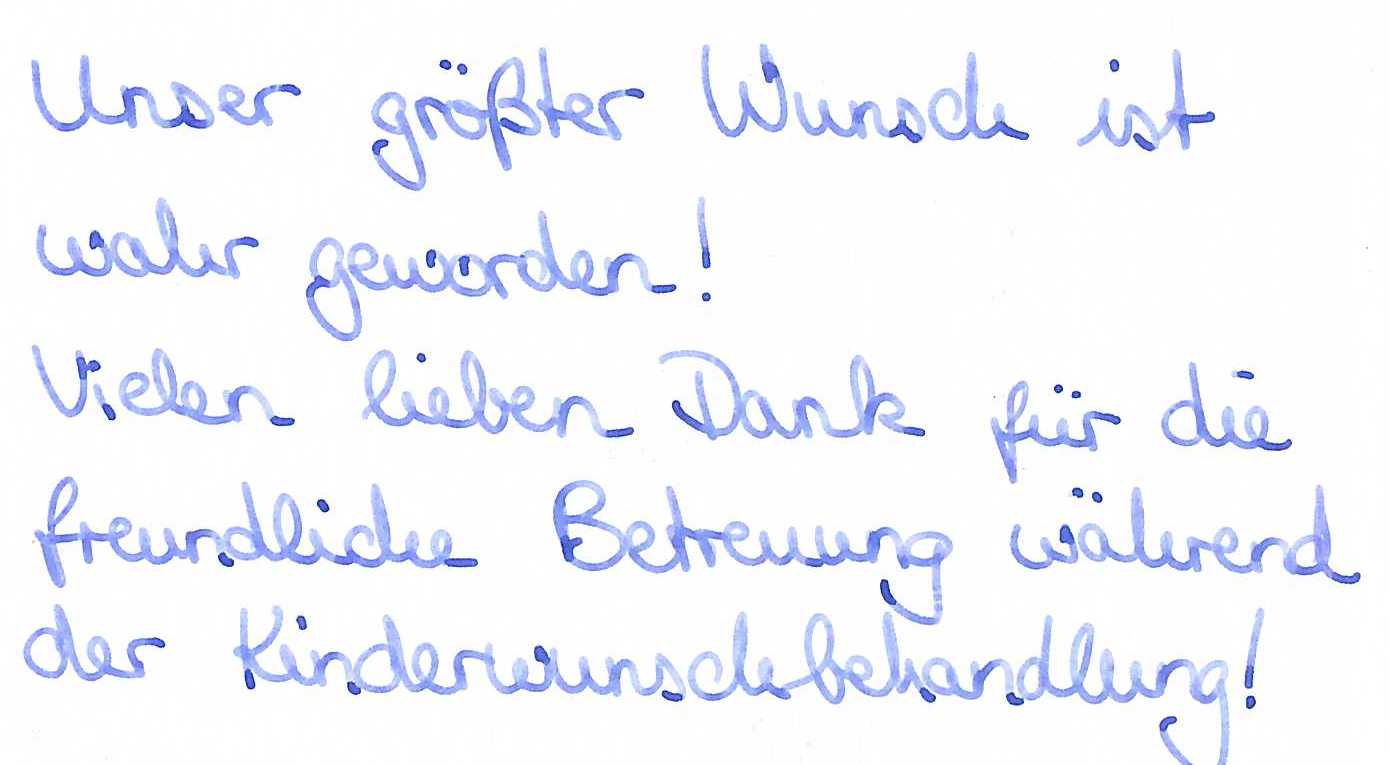 Unser größter Wunsch ist
wahr geworden!
Vielen lieben Dank für die
freundliche Betreuung während
der Kinderwunschbehandlung!